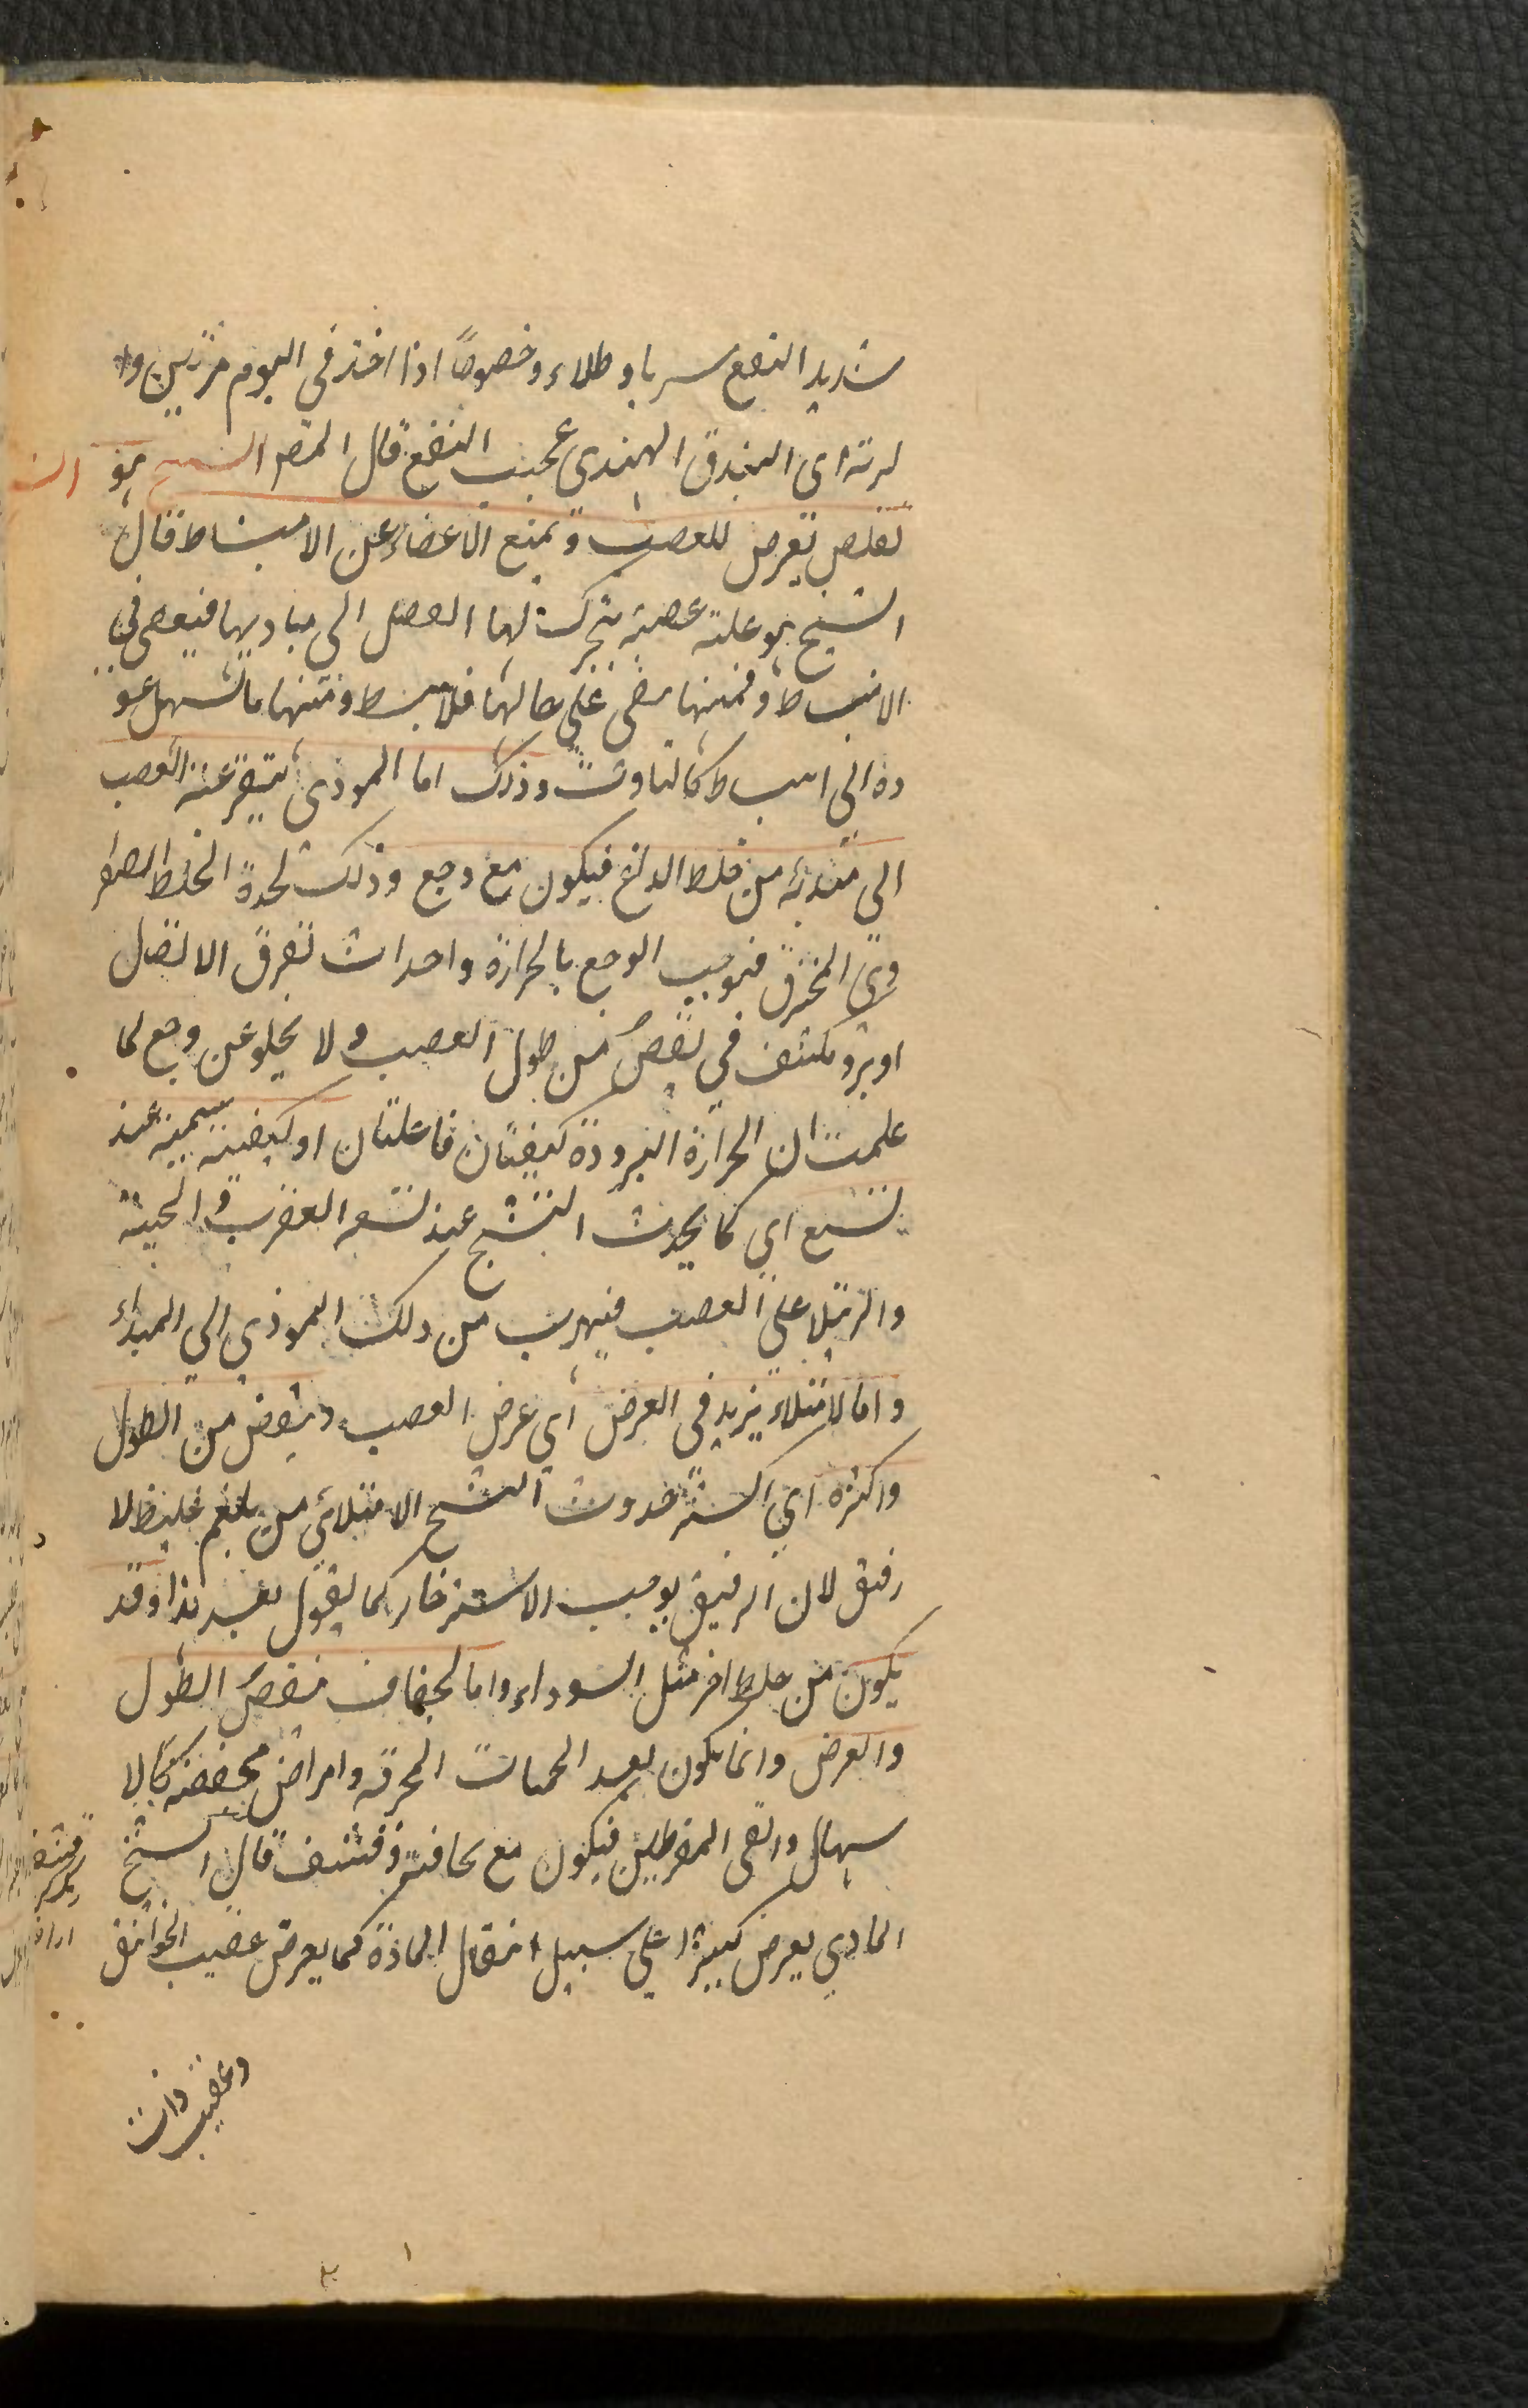 شديد النفع شربا وطلاء وخصوصًا اذا اخذ في اليوم مرتين وا
لرته اى البندق الهندى عجيب النفع قال المص التشنج هو
تقلص يعرض للعصب و يمنع الاعضاء عن الانبساط قال
الشيخ هو علته عصبية يتحرك لها العضل الى مباديها فيعصى في
الانبساط فمنها يبقى على حالها فلا ينبسط ومنها ما يسهل عو
ده الى انبساط كالتثاوب وذلك اما لموذى يتفرعنه العصب
الى مبدئه من خلط الذاع فيكون مع وجع وذلك لحدة الخلط الصفر
وى المحرق فيوجب الوجع بالحرارة واحداث تفرق الاتصال
او برد مكثف في نقص من طول العصب ولا يخلو عن وجع لما
علمت ان الحرارة البرودة كيفيتان فاعلتان او كيفية سمية عند
لسع اي كما يحدث التشنج عند لسعه العقرب و الحية
والرتيلا على العصب فيهرب من ذلك الموذي الى المبداء
واما لامتلاء يزيد في العرض اي عرض العصب و ينقص من الطول
واكثره اي اكثر حدوث التشنج الامتلائي من بلغم غليظ لا
رقيق لان الرقيق يوجب الاسترخاء كما يقول بعد هذا وقد
يكون من خلط اخر مثل السوداء واما لجفاف ينقص الطول
والعرض وانما يكون بعد الحميات المحرقه وامراض مجففة كالا
سهال والقى المفرطين فيكون مع نحافة وقشف قال الشيخ
المادي يعرض كثيرًا على سبيل انتقال المادة كما يعرض عقيب الخوانق
وعقيب ذات